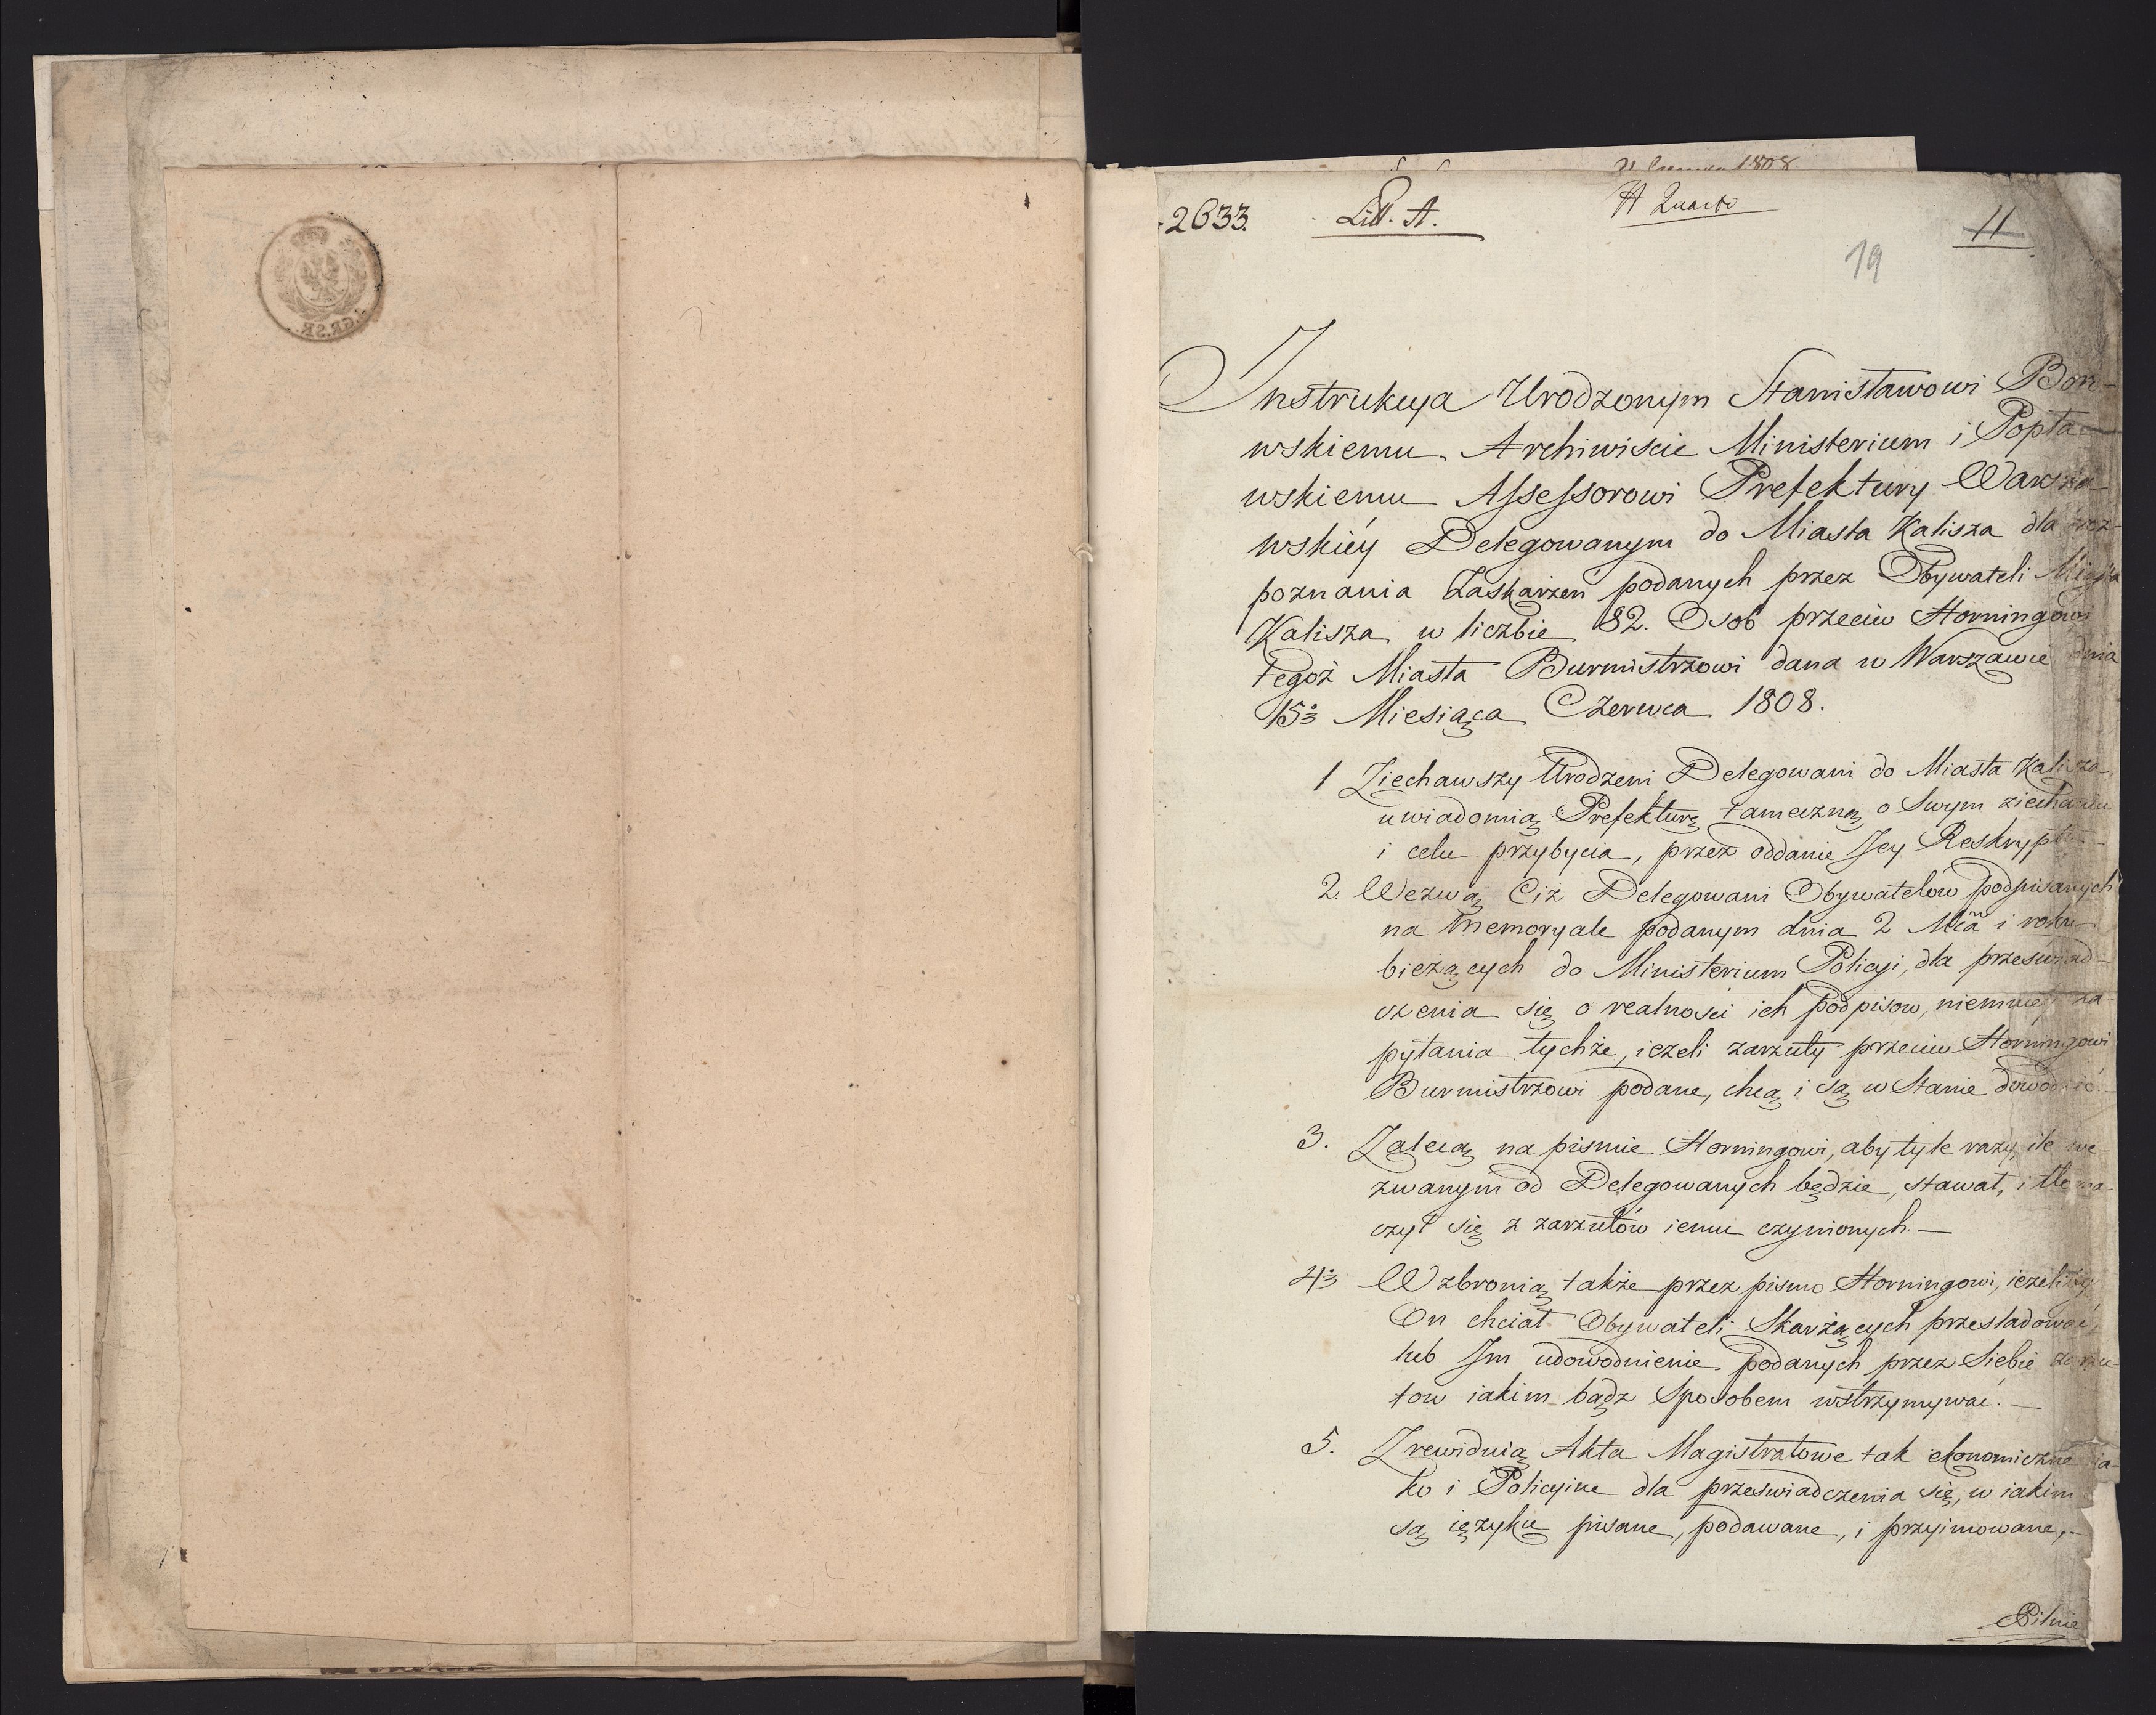 1808
2633. Litt. A. A Quarto
11
19
Instrukcya Urodzonym Stanisławowi Bor-
wskiemu Archiwiście Ministerium i Popła-
wskiemu Assessorowi Prefektury Warsza
wskiéy Delegowanym do Miasta Kalisza dla roz-
poznania Zaskarzeń podanych przez Obywateli Miasta
Kalisza w liczbie 82. Osob przeciw Horningowi
tegoż Miasta Burmistrzowi dana w Warszawie dnia
15o Miesiąca Czerwca 1808.
1 Ziechawszy Urodzeni Delegowani do Miasta Kalisza
uwiadomią Prefekturę tameczną o Swym ziechaniu
i celu przybycia, przez oddanie Jey Reskryptu
2. Wezwą Ciż Delegowani Obywatelow podpisanych
na Memoryale podanym dnia 2 Mca i roku
bieżących do Ministerium Policyi, dla przeswiad-
czenia się o realnosci ich podpisow, niemniey za-
pytania tychże, ieżeli zarzuty przeciw Horningowi
Burmistrzowi podane, chcą i są w Stanie dowodzić.
3. Zalecą na pismie Horningowi, aby tyle razy, ile we-
zwanym od Delegowanych będzie, stawał, i tłoma-
czył się z zarzutów iemu czynionych.—
4o Wzbronią także przez pismo Horningowi, ieżeliby
On chciał Obywateli Skarżących przesladować,
lub Jm udowodnienie podanych przez Siebie zarzu-
tow iakim bądz Sposobem wstrzymywać.—
5. Zrewidują Akta Magistratowe tak ekonomiczne ia-
ko i Policyine dla przeswiadczenia się, w iakim
są ięzyku pisane, podawane, i przyimowane,—
Pilnie